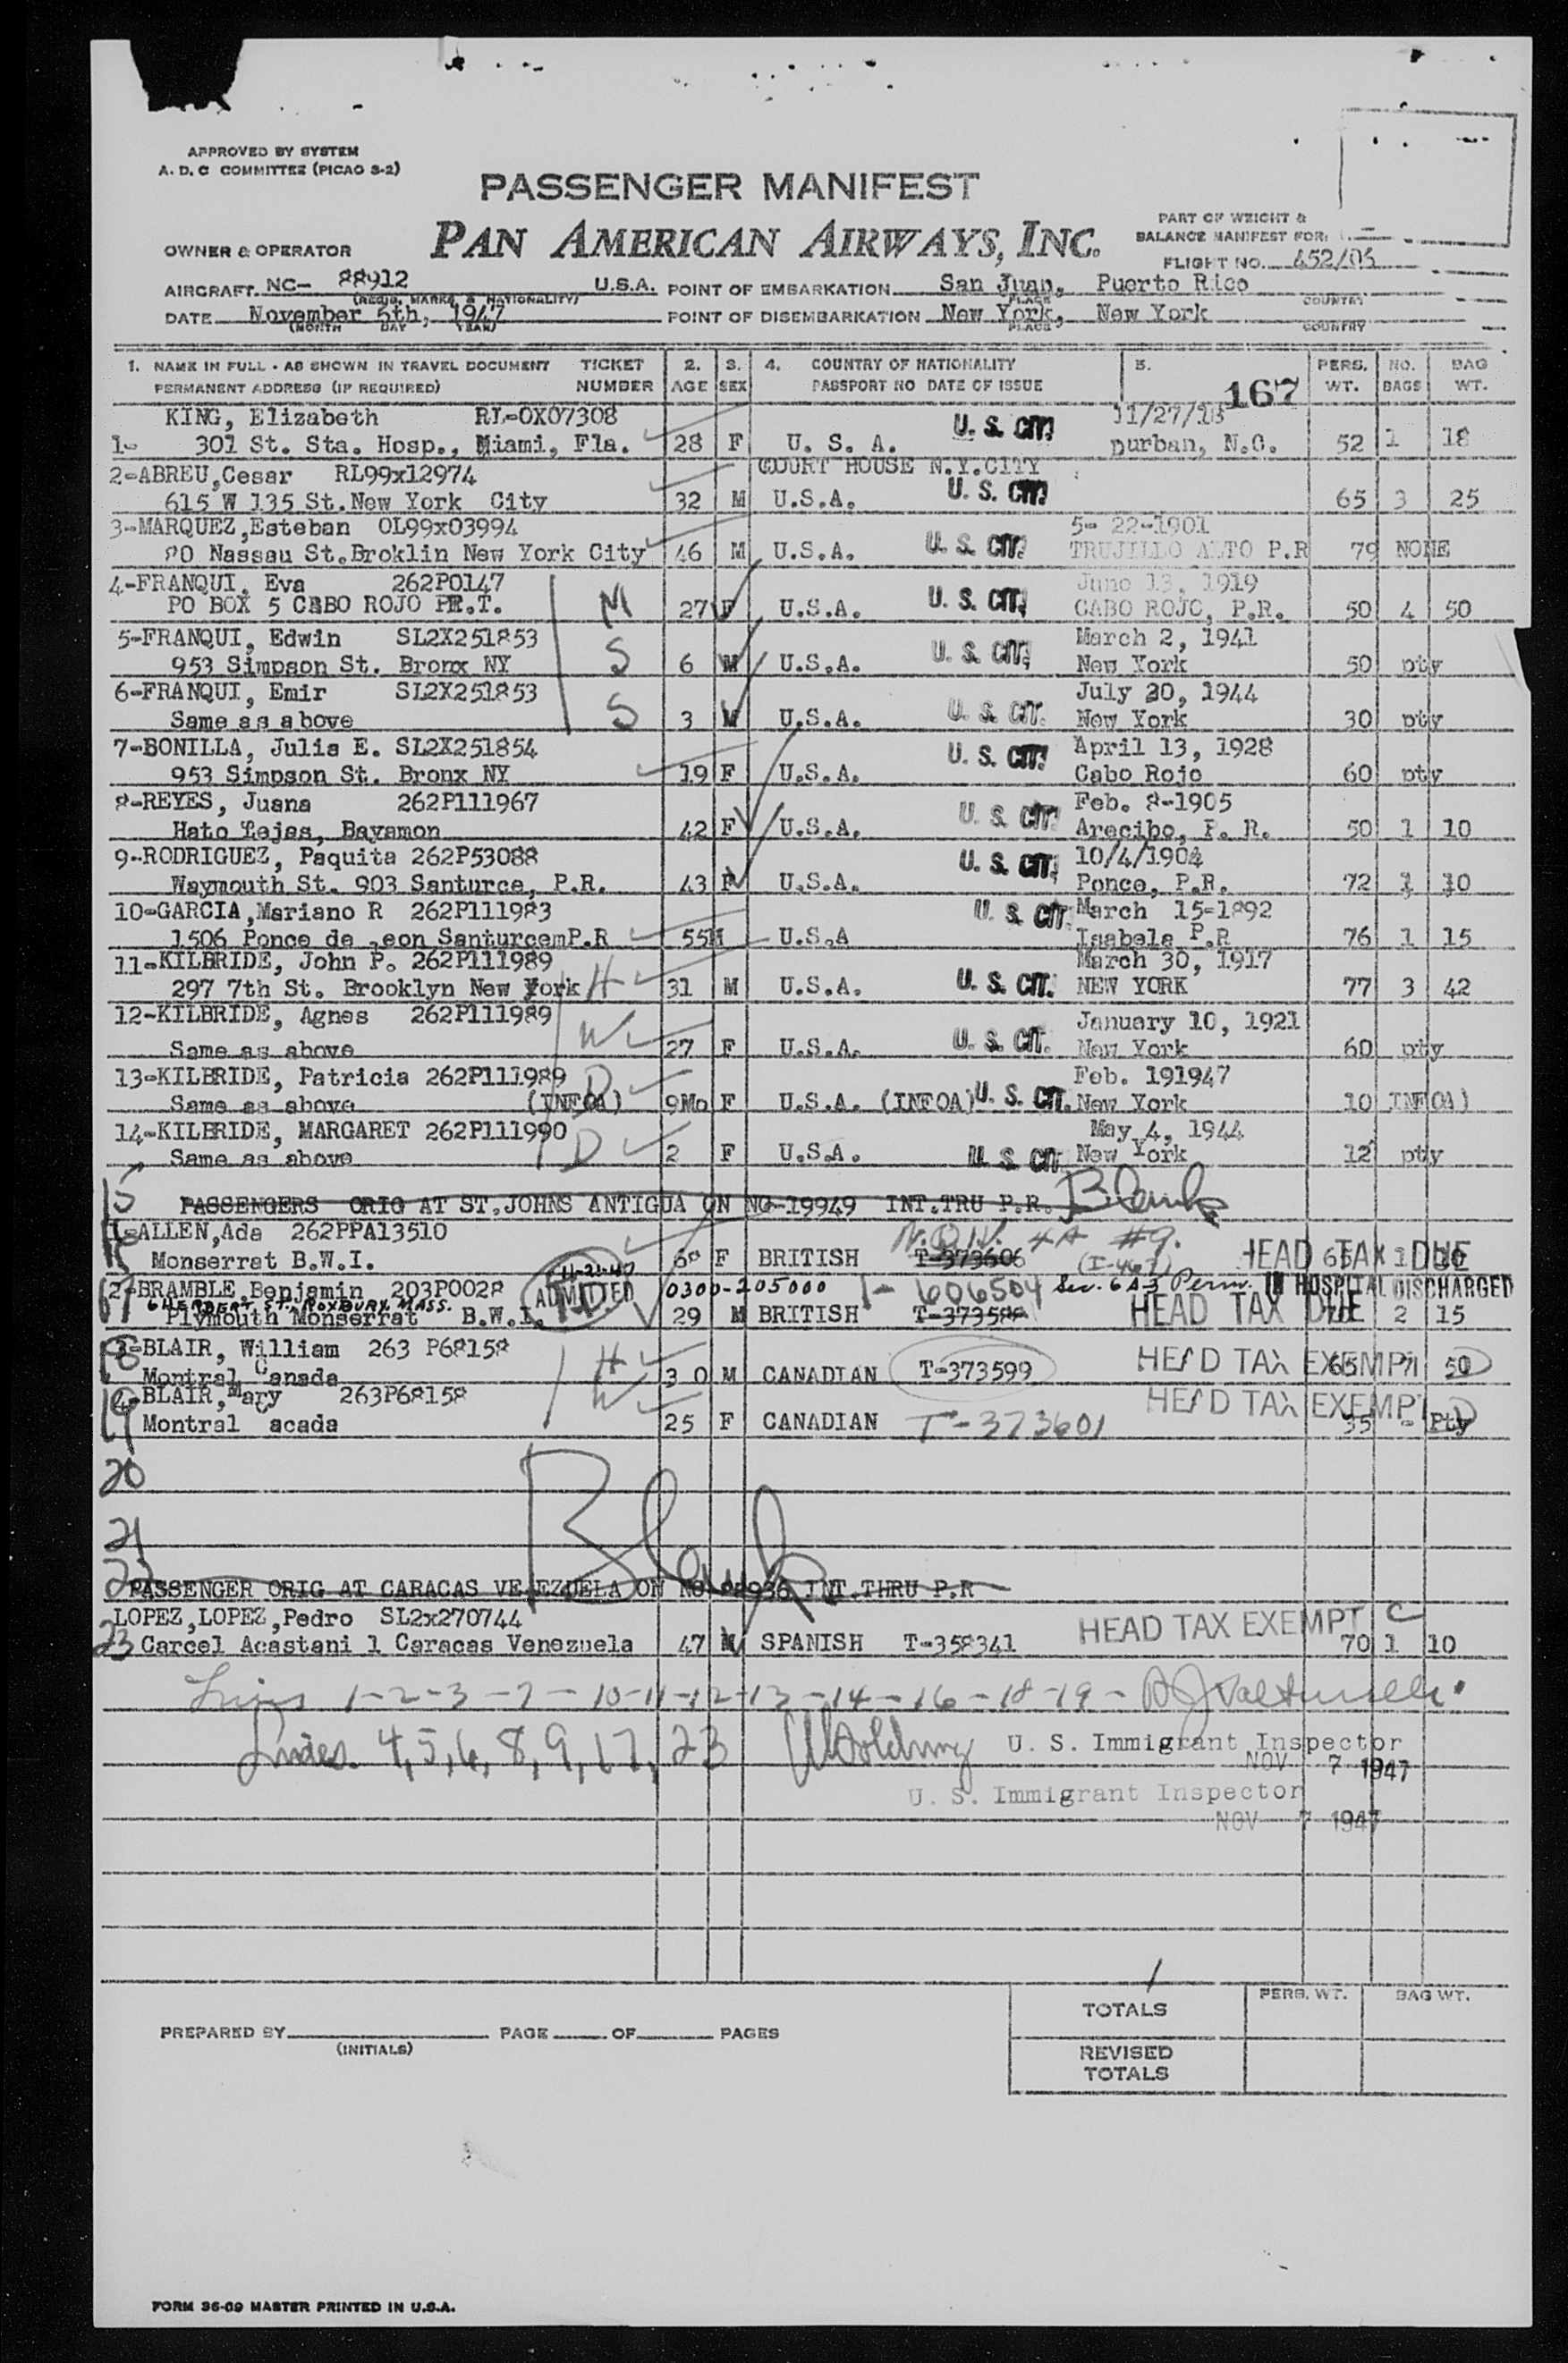 APPROVED BY SYSTEM
A. D. C COMMITTEE (PICAO S-2)
PASSENGER MANIFEST
PAN AMERICAN AIRWAYS, INC.
PART OF WEIGHT &
BALANCE MANIFEST FOR:
OWNER & OPERATOR
FLIGHT NO. 452/05
AIRCRAFT NC- 88912 U.S.A. POINT OF EMBARKATION San Juan, Puerto Rico
(REGIS. MARKS & NATIONALITY) PLACE COUNTRY
DATE November 5th, 1947 POINT OF DISEMBARKATION New York, New York
(MONTH DAY YEAR) PLACE COUNTRY
1. NAME IN FULL - AS SHOWN IN TRAVEL DOCUMENT TICKET 2. 3. 4. COUNTRY OF NATIONALITY 5. PERS. NO. BAG
PERMANENT ADDRESS (IF REQUIRED) NUMBER AGE SEX PASSPORT NO DATE OF ISSUE 167 WT. BAGS WT.
KING, Elizabeth RL-OX07308 U. S. CIT. 11/27/18
1- 301 St. Sta. Hosp., Miami, Fla. 28 F U. S. A. Durban, N.C. 52 1 18
2-ABREU,Cesar RL99x12974 COURT HOUSE N.Y.CITY
615 W 135 St.New York City 32 M U.S.A. U. S. CIT. 65 3 25
3-MARQUEZ,Esteban OL99x03994 5- 22-1901
80 Nassau St.Broklin New York City 46 M U.S.A. U. S. CIT. TRUJILLO ALTO P.R 79 NONE
4-FRANQUI, Eva 262P0147 M June 13, 1919
PO BOX 5 CABO ROJO PR.T. 27 F U.S.A. U. S. CIT. CABO ROJO, P.R. 50 4 50
5-FRANQUI, Edwin SL2X251853 S March 2, 1941
953 Simpson St. Bronx NY 6 M U.S.A. U. S. CIT. New York 50 pty
6-FRANQUI, Emir SL2X251853 S July 20, 1944
Same as above 3 M U.S.A. U. S. CIT. New York 30 pty
7-BONILLA, Julia E. SL2X251854 U. S. CIT. April 13, 1928
953 Simpson St. Bronx NY 19 F U.S.A. Cabo Rojo 60 pty
8-REYES, Juana 262P111967 U. S. CIT. Feb. 8-1905
Hato Tejas, Bayamon 42 F U.S.A. Arecibo, P. R. 50 1 10
9-RODRIGUEZ, Paquita 262P53088 U. S. CIT. 10/4/1904
Waymouth St. 903 Santurce, P.R. 43 F U.S.A. Ponce, P.R. 72 1 10
10-GARCIA,Mariano R 262P111983 U. S. CIT. March 15-1892
1506 Ponce de eon SanturcemP.R 55M U.S.A Isabela P.R 76 1 15
11-KILBRIDE, John P. 262P111989 March 30, 1917
297 7th St. Brooklyn New York H 31 M U.S.A. U. S. CIT. NEW YORK 77 3 42
12-KILBRIDE, Agnes 262P111989 W January 10, 1921
Same as above 27 F U.S.A. U. S. CIT. New York 60 pty
13-KILBRIDE, Patricia 262P111989 D Feb. 191947
Same as above (INFOA) 9Mo F U.S.A. (INFOA) U. S. CIT. New York 10 INF(OA)
14-KILBRIDE, MARGARET 262P111990 May 4, 1944
Same as above D 2 F U.S.A. U. S. CIT. New York 12 pty
15 PASSENGERS ORIG AT ST.JOHNS ANTIGUA ON NC-19949 INT.TRU P.R. Blank
1-ALLEN,Ada 262PPA13510 4A #9.
16 Monserrat B.W.I. 60 F BRITISH T-373606 (I-467) HEAD TAX DUE 1
2-BRAMBLE,Benjamin 203P0028 11-21-47 ADMITTED 0300-205000 1- 606504 Sec. 6 A3 Perm. IN HOSPITAL DISCHARGED
6 HERBERT ST., ROXBURY, MASS.
17 Plymouth Monserrat B.W.I. 29 M BRITISH T-373588 HEAD TAX DUE 2 15
3-BLAIR, William 263 P68158 H
18 Montral Canada 30 M CANADIAN T-373599 HEAD TAX EXEMPT 65 1 50
4-BLAIR, Mary 263P68158 W HEAD TAX EXEMPT
19 Montral acada 25 F CANADIAN T-373601 55 - Pty
20
21
Blank
22 PASSENGER ORIG AT CARACAS VENEZUELA ON NC 88936 INT.THRU P.R
LOPEZ,LOPEZ,Pedro SL2x270744 HEAD TAX EXEMPT C
23 Carcel Acastani 1 Caracas Venezuela 47 M SPANISH T-358341 70 1 10
Lines 1-2-3-7-10-11-12-13-14-16-18-19-
Lines 4,5,6,8,9,17,23 U. S. Immigrant Inspector
NOV 7 1947
U. S. Immigrant Inspector
NOV 7 1947
TOTALS PERS. WT. BAG WT.
PREPARED BY PAGE OF PAGES
(INITIALS)
REVISED
TOTALS
FORM 36-09 MASTER PRINTED IN U.S.A.